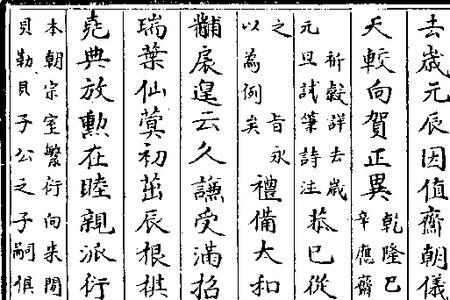 去歲元辰因值齋朝儀
天較向賀正異
乾隆己
辛應齋
祈穀詳去歲
元旦試筆詩注
恭已從
之 旨永
以為例矣
禮備大和
黼扆遑云久謙受滿招
瑞葉仙蓂初茁辰根棋
堯典放勳在睦親派衍
本朝宗室繁衍向来閒
貝勒貝子公之子嗣俱